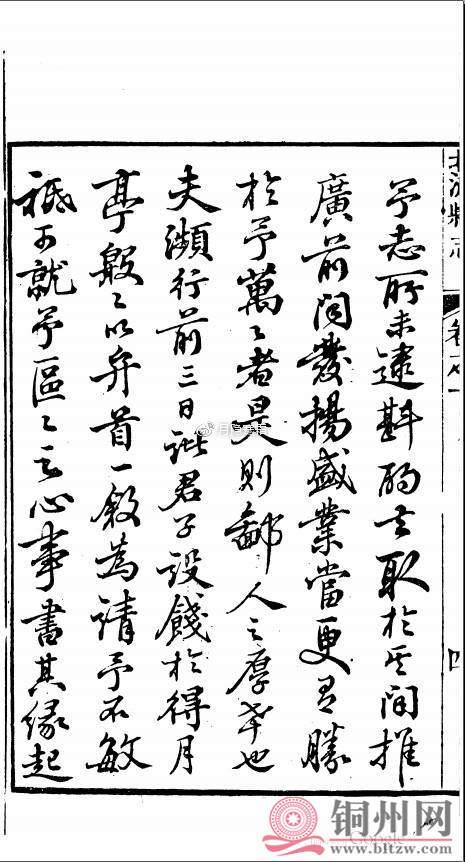 北流縣志
卷之一
四
予志所未逮斟酌去取於其間推
廣前聞發揚盛業當更有勝
於予萬〻者是則鄙人之厚幸也
夫瀕行前三日諸君子設餞於得月
亭殷〻以弁首一敘為請予不敏
祗可就予區〻之心事書其緣起
铜州网
Google
www.bltzw.com